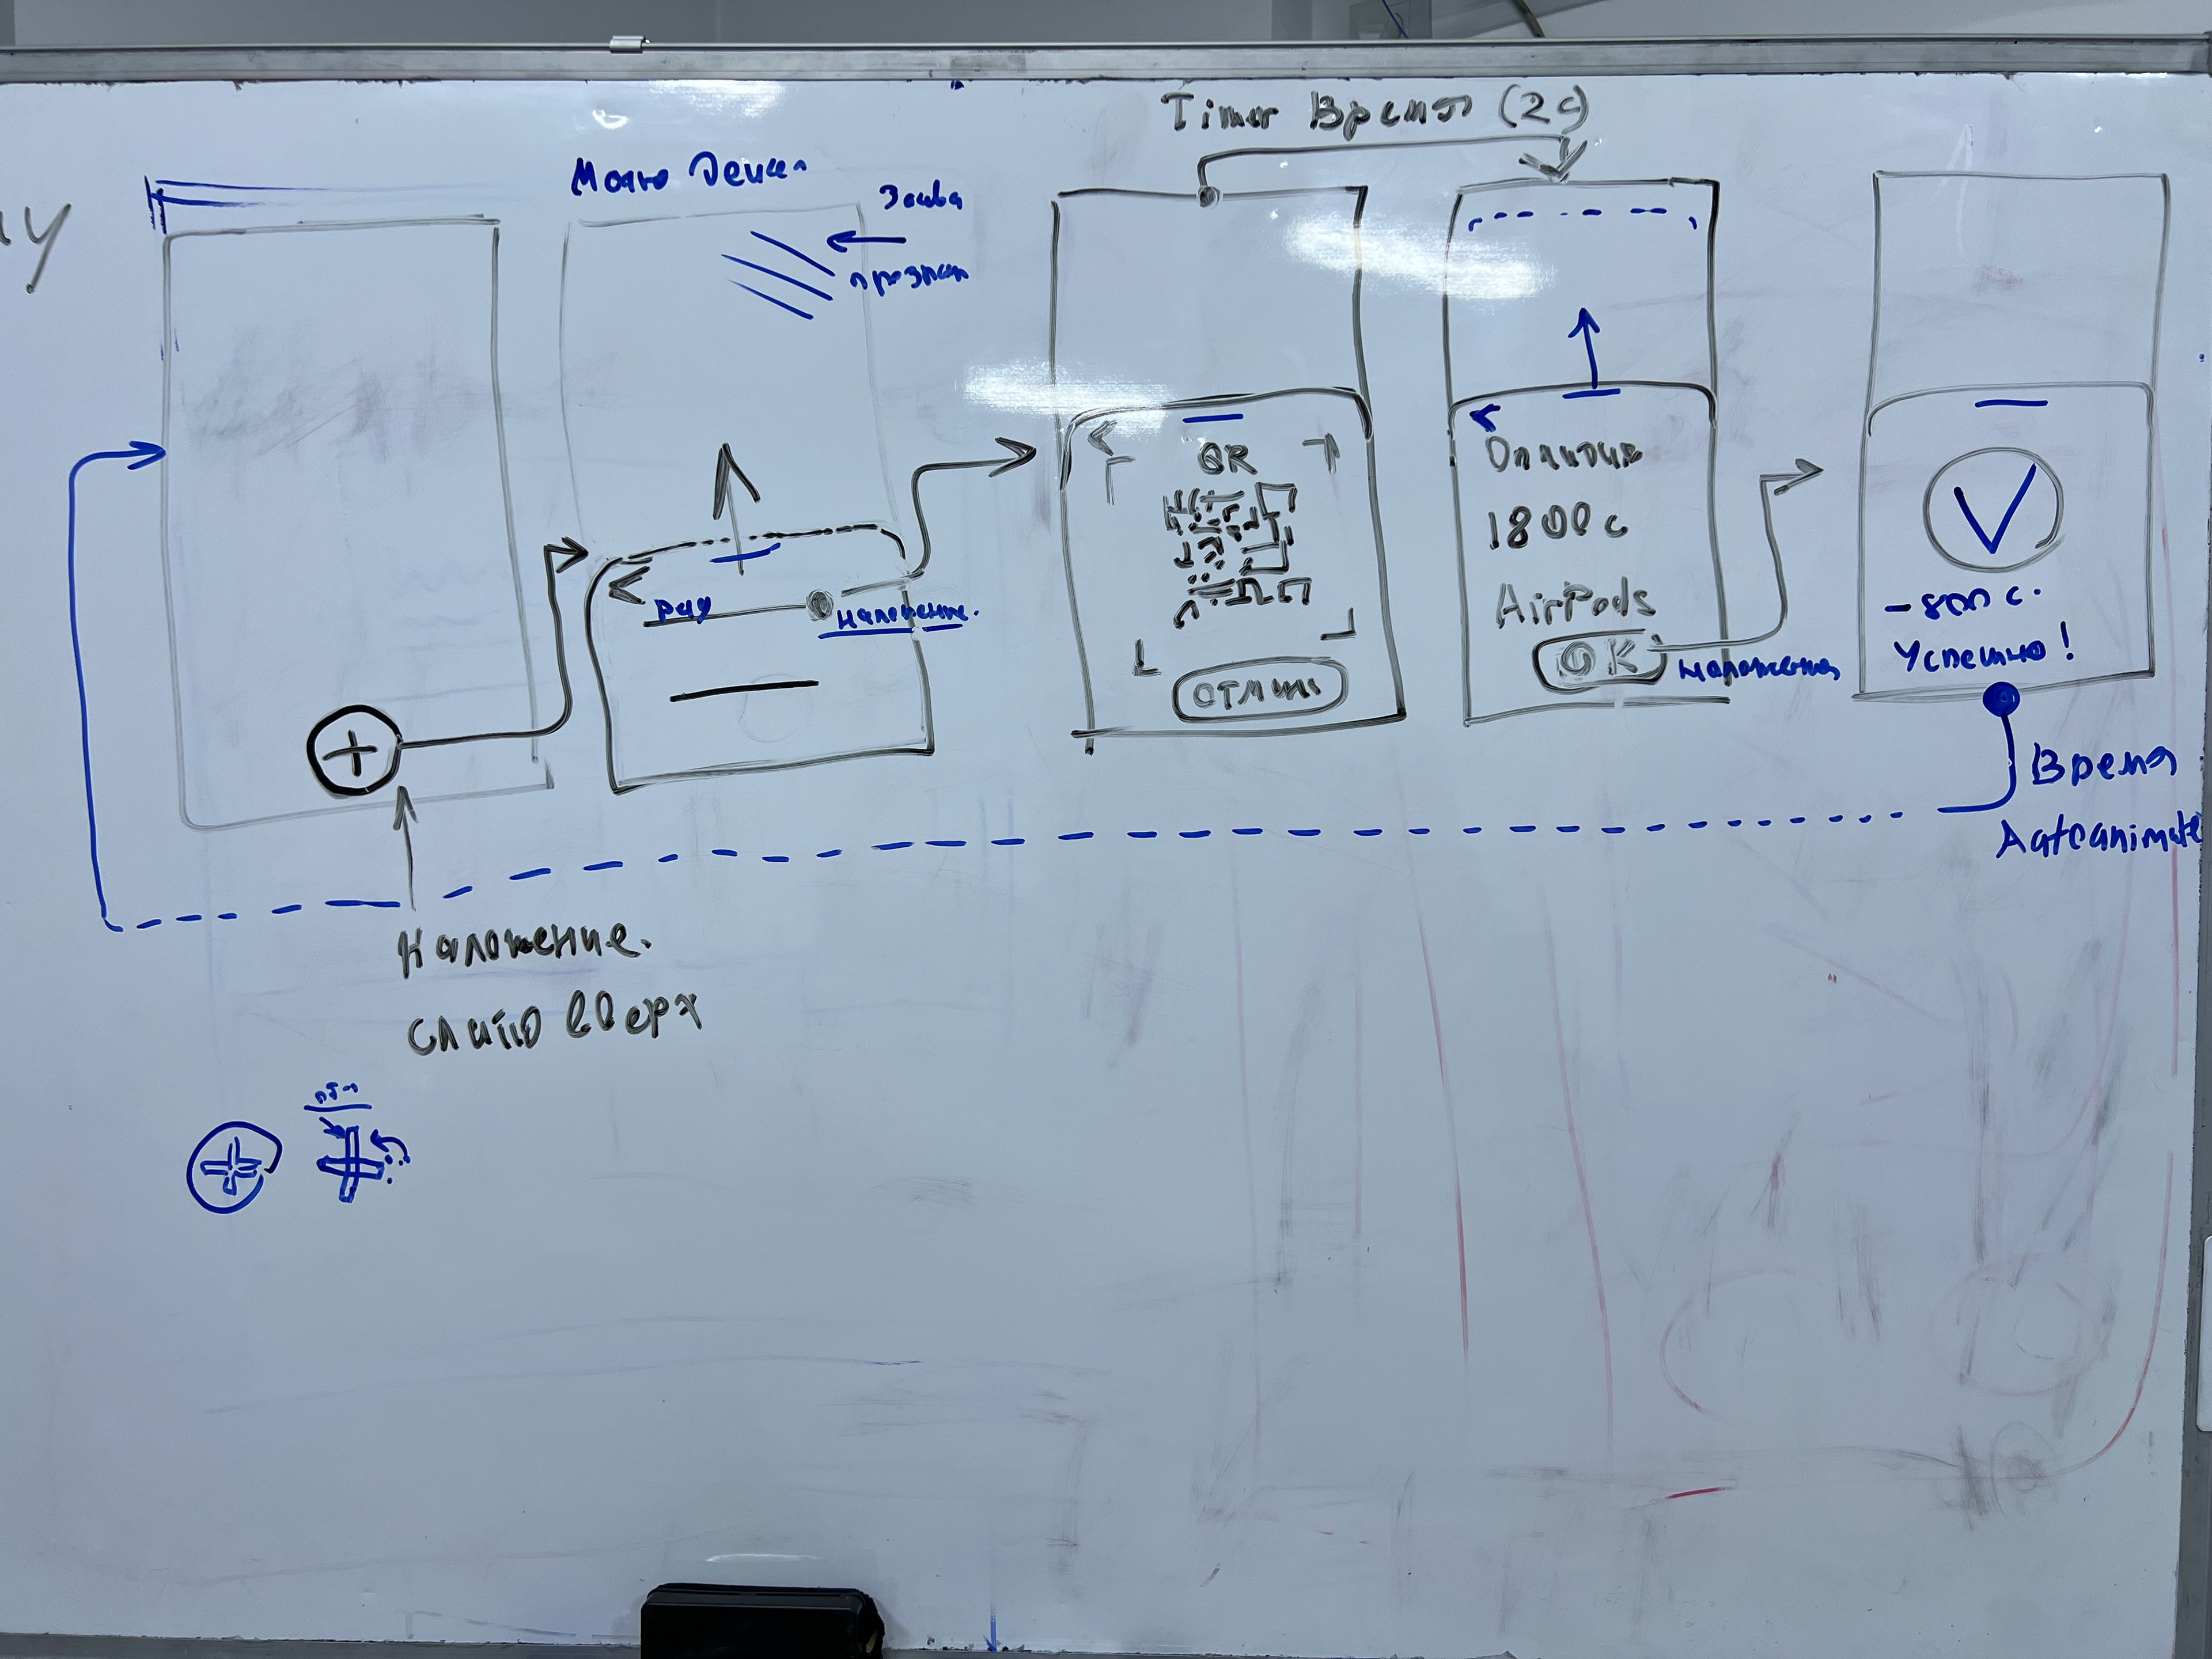 Timer Время (2с)
Pay
наложение.
QR
отмена
Оплатить
1800 с
AirPods
OK
наложение
-800 с.
Успешно!
Время
Autoanimate
Наложение.
слайд вверх